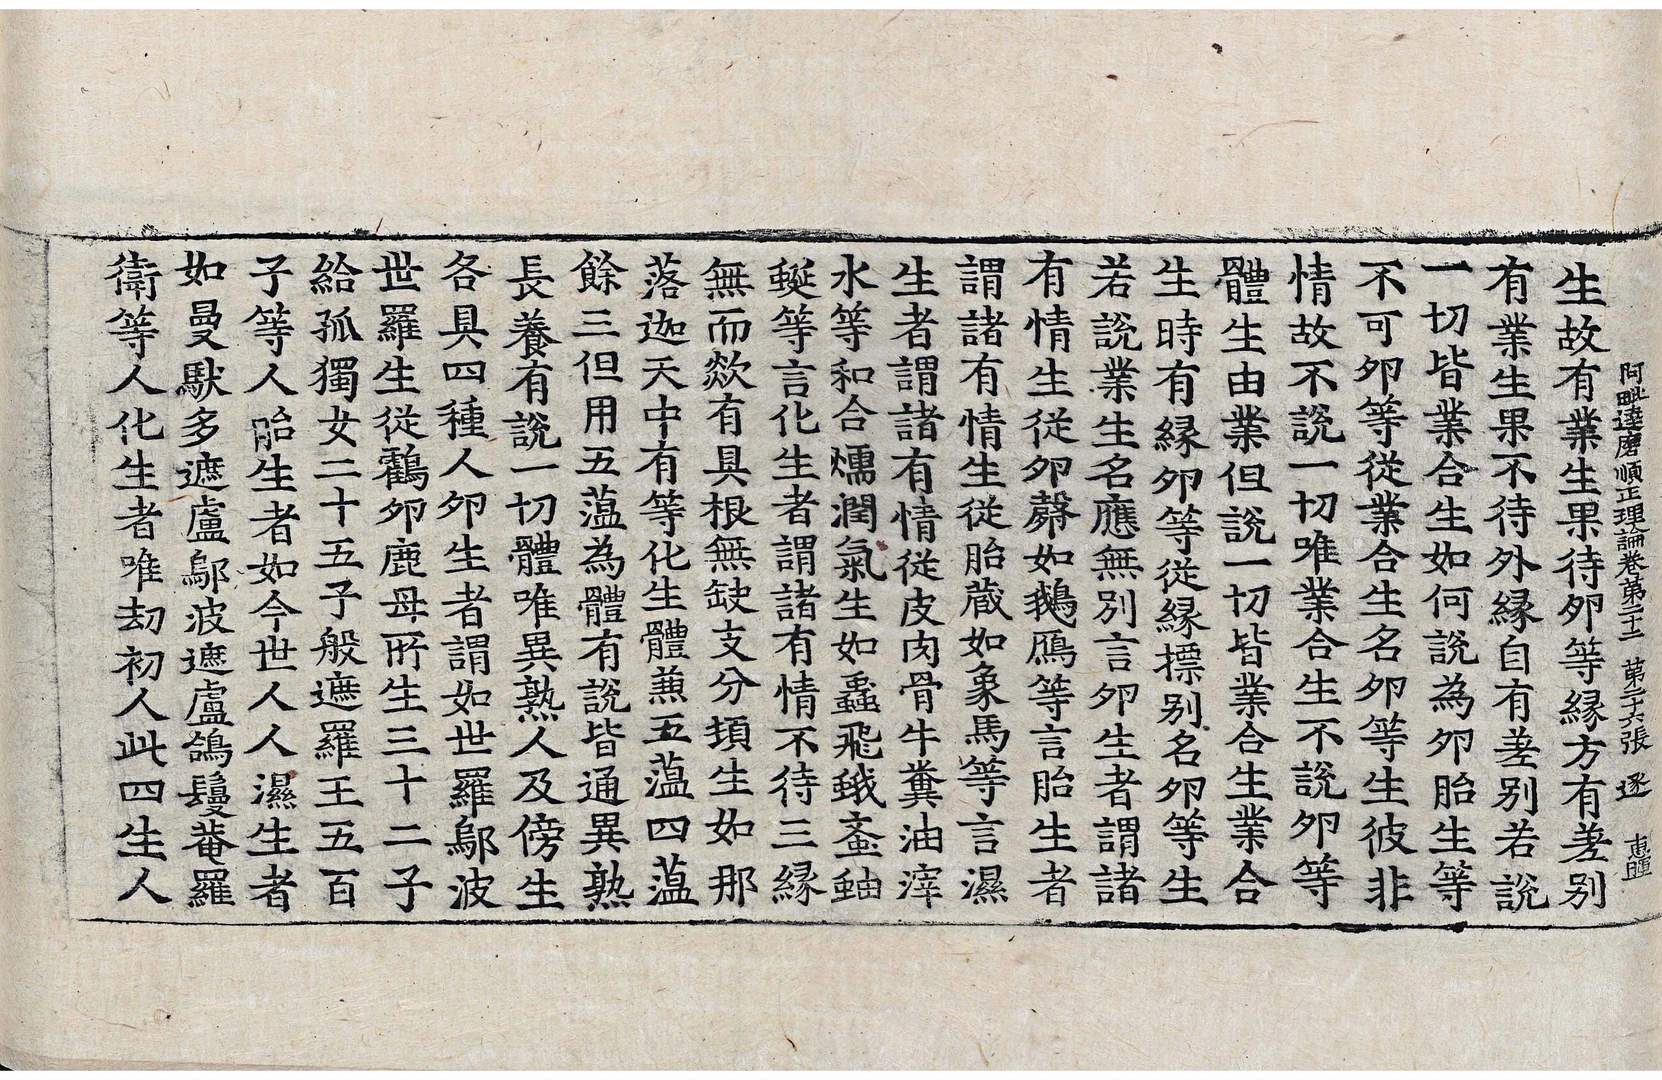 阿毗達磨順正理論卷第二十二 第二十六張 逐
生故有業生果待卵等緣方有差別
有業生果不待外緣自有差別若說
一切皆業合生如何說為卵胎生等
不可卵等從業合生名卵等生彼非
情故不說一切唯業合生不說卵等
體生由業但說一切皆業合生業合
生時有緣卵等從緣摽別名卵等生
若說業生名應無別言卵生者謂諸
有情生從卵㲉如鵝鴈等言胎生者
謂諸有情生從胎藏如象馬等言濕
生者謂諸有情從皮肉骨牛糞油滓
水等和合㬉潤氣生如蟲飛蛾蚉蚰
蜒等言化生者謂諸有情不待三緣
無而欻有具根無缺支分頓生如那
落迦天中有等化生體兼五蘊四蘊
餘三但用五蘊為體有說皆通異熟
長養有說一切體唯異熟人及傍生
各具四種人卵生者謂如世羅鄔波
世羅生從鶴卵鹿母所生三十二子
給孤獨女二十五子般遮羅王五百
子等人胎生者如今世人人濕生者
如曼馱多遮盧鄔波遮盧鴿鬘菴羅
衛等人化生者唯劫初人此四生人